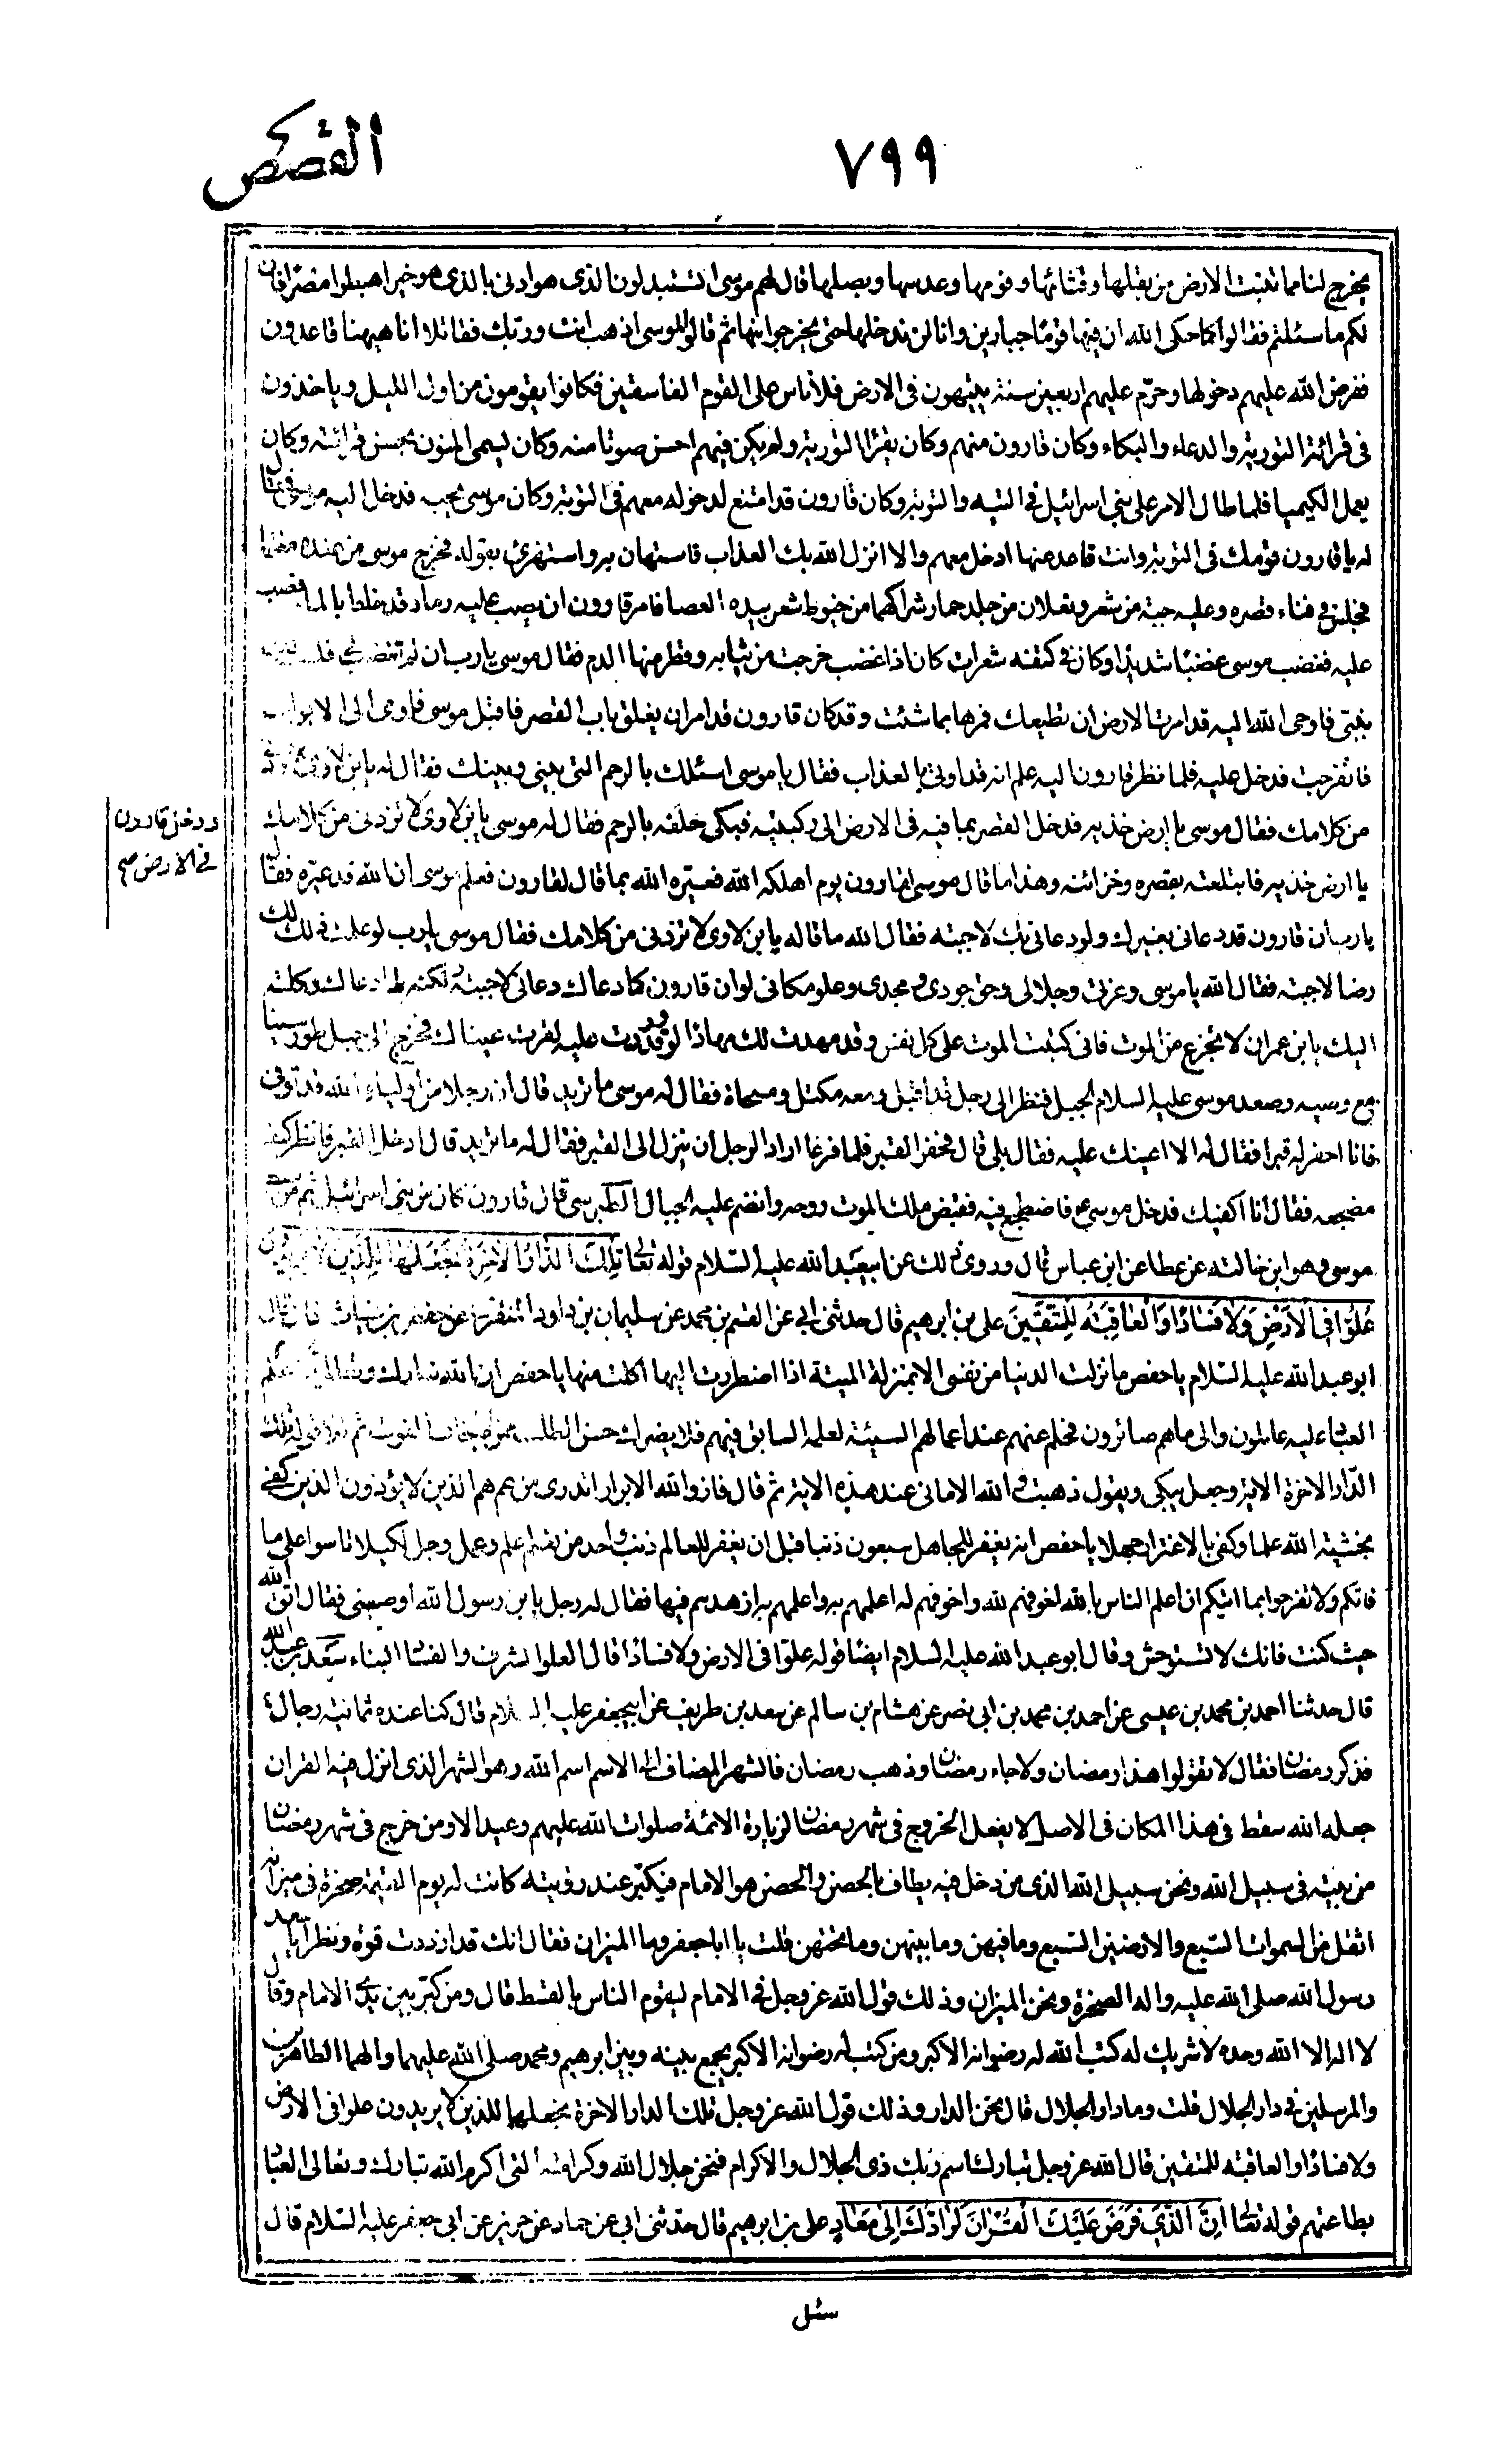 القصص
٧٩٩
يخرج لنا مما تنبت الارض من بقلها وقثائها وفومها وعدسها وبصلها قال لهم موسى اتستبدلون الذى هو ادنى بالذى هو خير اهبطوا مصرًا فان
لكم ما سئلتم فقالوا كما حكى الله ان فيها قومًا جبارين وانا لن ندخلها حتى يخرجوا منها ثم قالوا لموسى اذهب انت وربك فقاتلا انا هيهنا قاعدون
ففرض الله عليهم دخولها وحرّم عليهم اربعين سنة يتيهون فى الارض فلا تاس على القوم الفاسقين فكانوا يقومون من اول الليل و ياخذون
فى قرائة التورية والدعاء والبكاء وكان قارون منهم وكان يقرأ التورية ولم يكن فيهم احسن صوتا منه وكان يسمى المنون لحسن قرائته وكان
يعمل الكيميا فلما طال الامر على بنى اسرائيل فى التيه والتوبة وكان قارون قد امتنع لدخوله معهم فى التوبة وكان موسى يحبه فدخل اليه موسى فقال
له يا قارون قومك فى التوبة وانت قاعد عنها ادخل معهم والا انزل الله بك العذاب فاستهان به واستهزئ بقوله فخرج موسى من عنده مغتما
فجلس فى فناء قصره وعليه جبة من شعر ونعلان من جلد حمار شراكهما من خيوط شعر بيده العصا فامر قارون ان يصب عليه رماد قد خلط بالماء فصب
عليه فغضب موسى غضبًا شديدًا وكان فى كتفه شعرات كان اذا غضب خرجت من ثيابه وقطر منها الدم فقال موسى يا رب ان لم تغضب لى فلست
بنبىّ فاوحى الله اليه قد امرت الارض ان تطيعك فمرها بما شئت وقد كان قارون قد امر ان يغلق باب القصر فاقبل موسى فاومى الى الابواب
فانفرجت فدخل عليه فلما نظر قارون اليه علم انه قد اوتى بالعذاب فقال يا موسى اسئلك بالرحم التى بينى وبينك فقال له يا بن لاوى لا تزدنى
من كلامك فقال موسى يا ارض خذيه فدخل القصر بما فيه فى الارض الى ركبتيه فبكى خلفه بالرحم فقال له موسى يا بن لاوى لا تزدنى من كلامك
ودخل قارون
فى الارض صح
يا ارض خذيه فابتلعته بقصره وخزائنه وهذا ما قال موسى لقارون يوم اهلكه الله فعيّره الله بما قال لقارون فعلم موسى ان الله قد عيّره فقال
يا رب ان قارون قد دعانى بغيرك ولو دعانى بك لاجبته فقال الله ما قاله يا بن لاوى لا تزدنى من كلامك فقال موسى يا رب لو علمت ذلك لك
رضا لاجبته فقال الله يا موسى وعزتى وجلالى وحق جودى ومجدى وعلو مكانى لو ان قارون كما دعاك دعانى لاجبته لكنه لما دعاك وكلته
اليك يا بن عمران لا تجزع من الموت فانى كتبت الموت على كل نفس وقد مهدت لك مهادا لو قد وردت عليه لقرت عيناك فخرج الى جبل طور سينا
مع وصيه وصعد موسى عليه السلام الجبل فنظر الى رجل قد اقبل ومعه مكتل ومسحاة فقال له موسى ما تريد قال ان رجلا من اولياء الله قد توفى
فانا احفر له قبرا فقال له الا اعينك عليه فقال بلى قال فحفر القبر فلما فرغا اراد الرجل ان ينزل الى القبر فقال له ما تريد قال ادخل القبر فانظر كيف
مضجعه فقال انا اكفيك فدخل موسى ع فاضطجع فيه فقبض ملك الموت روحه وانضم عليه الجبال الطبرسى قال قارون كان من بنى اسرائيل ثم من
موسى وهو ابن خالته عن عطا عن ابن عباس قال وروى ذلك عن ابيعبد الله عليه السلام قوله تعا تِلْكَ الدَّارُ الْآخِرَةُ نَجْعَلُهَا لِلَّذِينَ لَا يُرِيدُونَ
عُلُوًّا فِى الْأَرْضِ وَلَا فَسَادًا وَالْعَاقِبَةُ لِلْمُتَّقِينَ على بن ابرهيم قال حدثنى ابى عن القسم بن محمد عن سليمان بن داود المنقرى عن حفص بن غياث قال قال
ابو عبد الله عليه السلام يا حفص ما نزلت الدنيا من نفسى الا بمنزلة الميتة اذا اضطررت اليها اكلت منها يا حفص ان الله تبارك وتعالى علم ما
العباد عليه عاملون والى ما هم صائرون فحلم عنهم عند اعمالهم السيئة لعلمه السابق فيهم فلا يضرك حسن الطلب ممن لا يخاف الفوت ثم تلا قوله تلك
الدّار الاخرة الاية وجعل يبكى ويقول ذهبت و الله الامانى عند هذه الاية ثم قال فاز والله الابرار اتدرى من هم هم الذين لا يؤذون الذر كفى
بخشية الله علما وكفى بالاغترار جهلا يا حفص انه يغفر للجاهل سبعون ذنبا قبل ان يغفر للعالم ذنب واحد من تعلم علم وعمل لكيلا تاسوا على ما
فاتكم ولا تفرحوا بما اتيكم ان اعلم الناس بالله اخوفهم لله واخوفهم له اعلمهم به واعلمهم به ازهدهم فيها فقال له رجل يا بن رسول الله اوصينى فقال اتق الله
حيث كنت فانك لا تستوحش وقال ابو عبد الله عليه السلام ايضا قوله علوّا فى الارض ولا فسادًا قال العلو الشرف والفساد البناء سعد بن عبد الله
قال حدثنا احمد بن محمد بن عيسى عن احمد بن محمد بن ابى نصر عن هشام بن سالم عن سعد بن طريف عن ابيجعفر عليه السلام قال كنا عنده ثمانية رجال
فذكر رمضان فقال لا تقولوا هذا رمضان ولا جاء رمضان وذهب رمضان فالشهر المضاف الى الاسم اسم الله وهو الشهر الذى انزل فيه القران
جعله الله سقط فى هذا المكان فى الاصل لا يفعل الخروج فى شهر رمضان لزيارة الائمة صلوات الله عليهم وعيد الا ومن خرج فى شهر رمضان
من بيته فى سبيل الله ونحن سبيل الله الذى من دخل فيه يطاف بالحصن والحصن هو الامام فيكبّر عند رؤيته كانت له يوم القيمة صخرة فى ميزانه
اثقل من السموات السبع والارضين السبع وما فيهن وما بينهن وما تحتهن قلت يا ابا جعفر وما الميزان فقال انك قد ازددت قوة ونظرا يا سعد
رسول الله صلى الله عليه واله الصخرة ونحن الميزان وذلك قول الله عز وجل فى الامام ليقوم الناس بالقسط قال ومن كبّر بين يدى الامام وقال
لا اله الا الله وحده لا شريك له كتب الله له رضوانه الاكبر ومن كتب له رضوانه الاكبر يجمع بينه وبين ابرهيم ومحمد صلى الله عليهما والهما الطاهرين
والمرسلين فى دار الجلال قلت وما دار الجلال قال نحن الدار وذلك قول الله عز وجل تلك الدار الاخرة نجعلها للذين لا يريدون علوا فى الارض
ولا فسادًا والعاقبة للمتقين قال الله عز وجل تبارك اسم ربك ذى الجلال والاكرام فنحن جلال الله وكرامته التى اكرم الله تبارك وتعالى العباد
بطاعتهم قوله تعا اِنَّ الَّذِى فَرَضَ عَلَيْكَ الْقُرْانَ لَرَادُّكَ اِلى مَعَادٍ على بن ابرهيم قال حدثنى ابى عن حماد عن حريز عن ابى جعفر عليه السلام قال
سئل